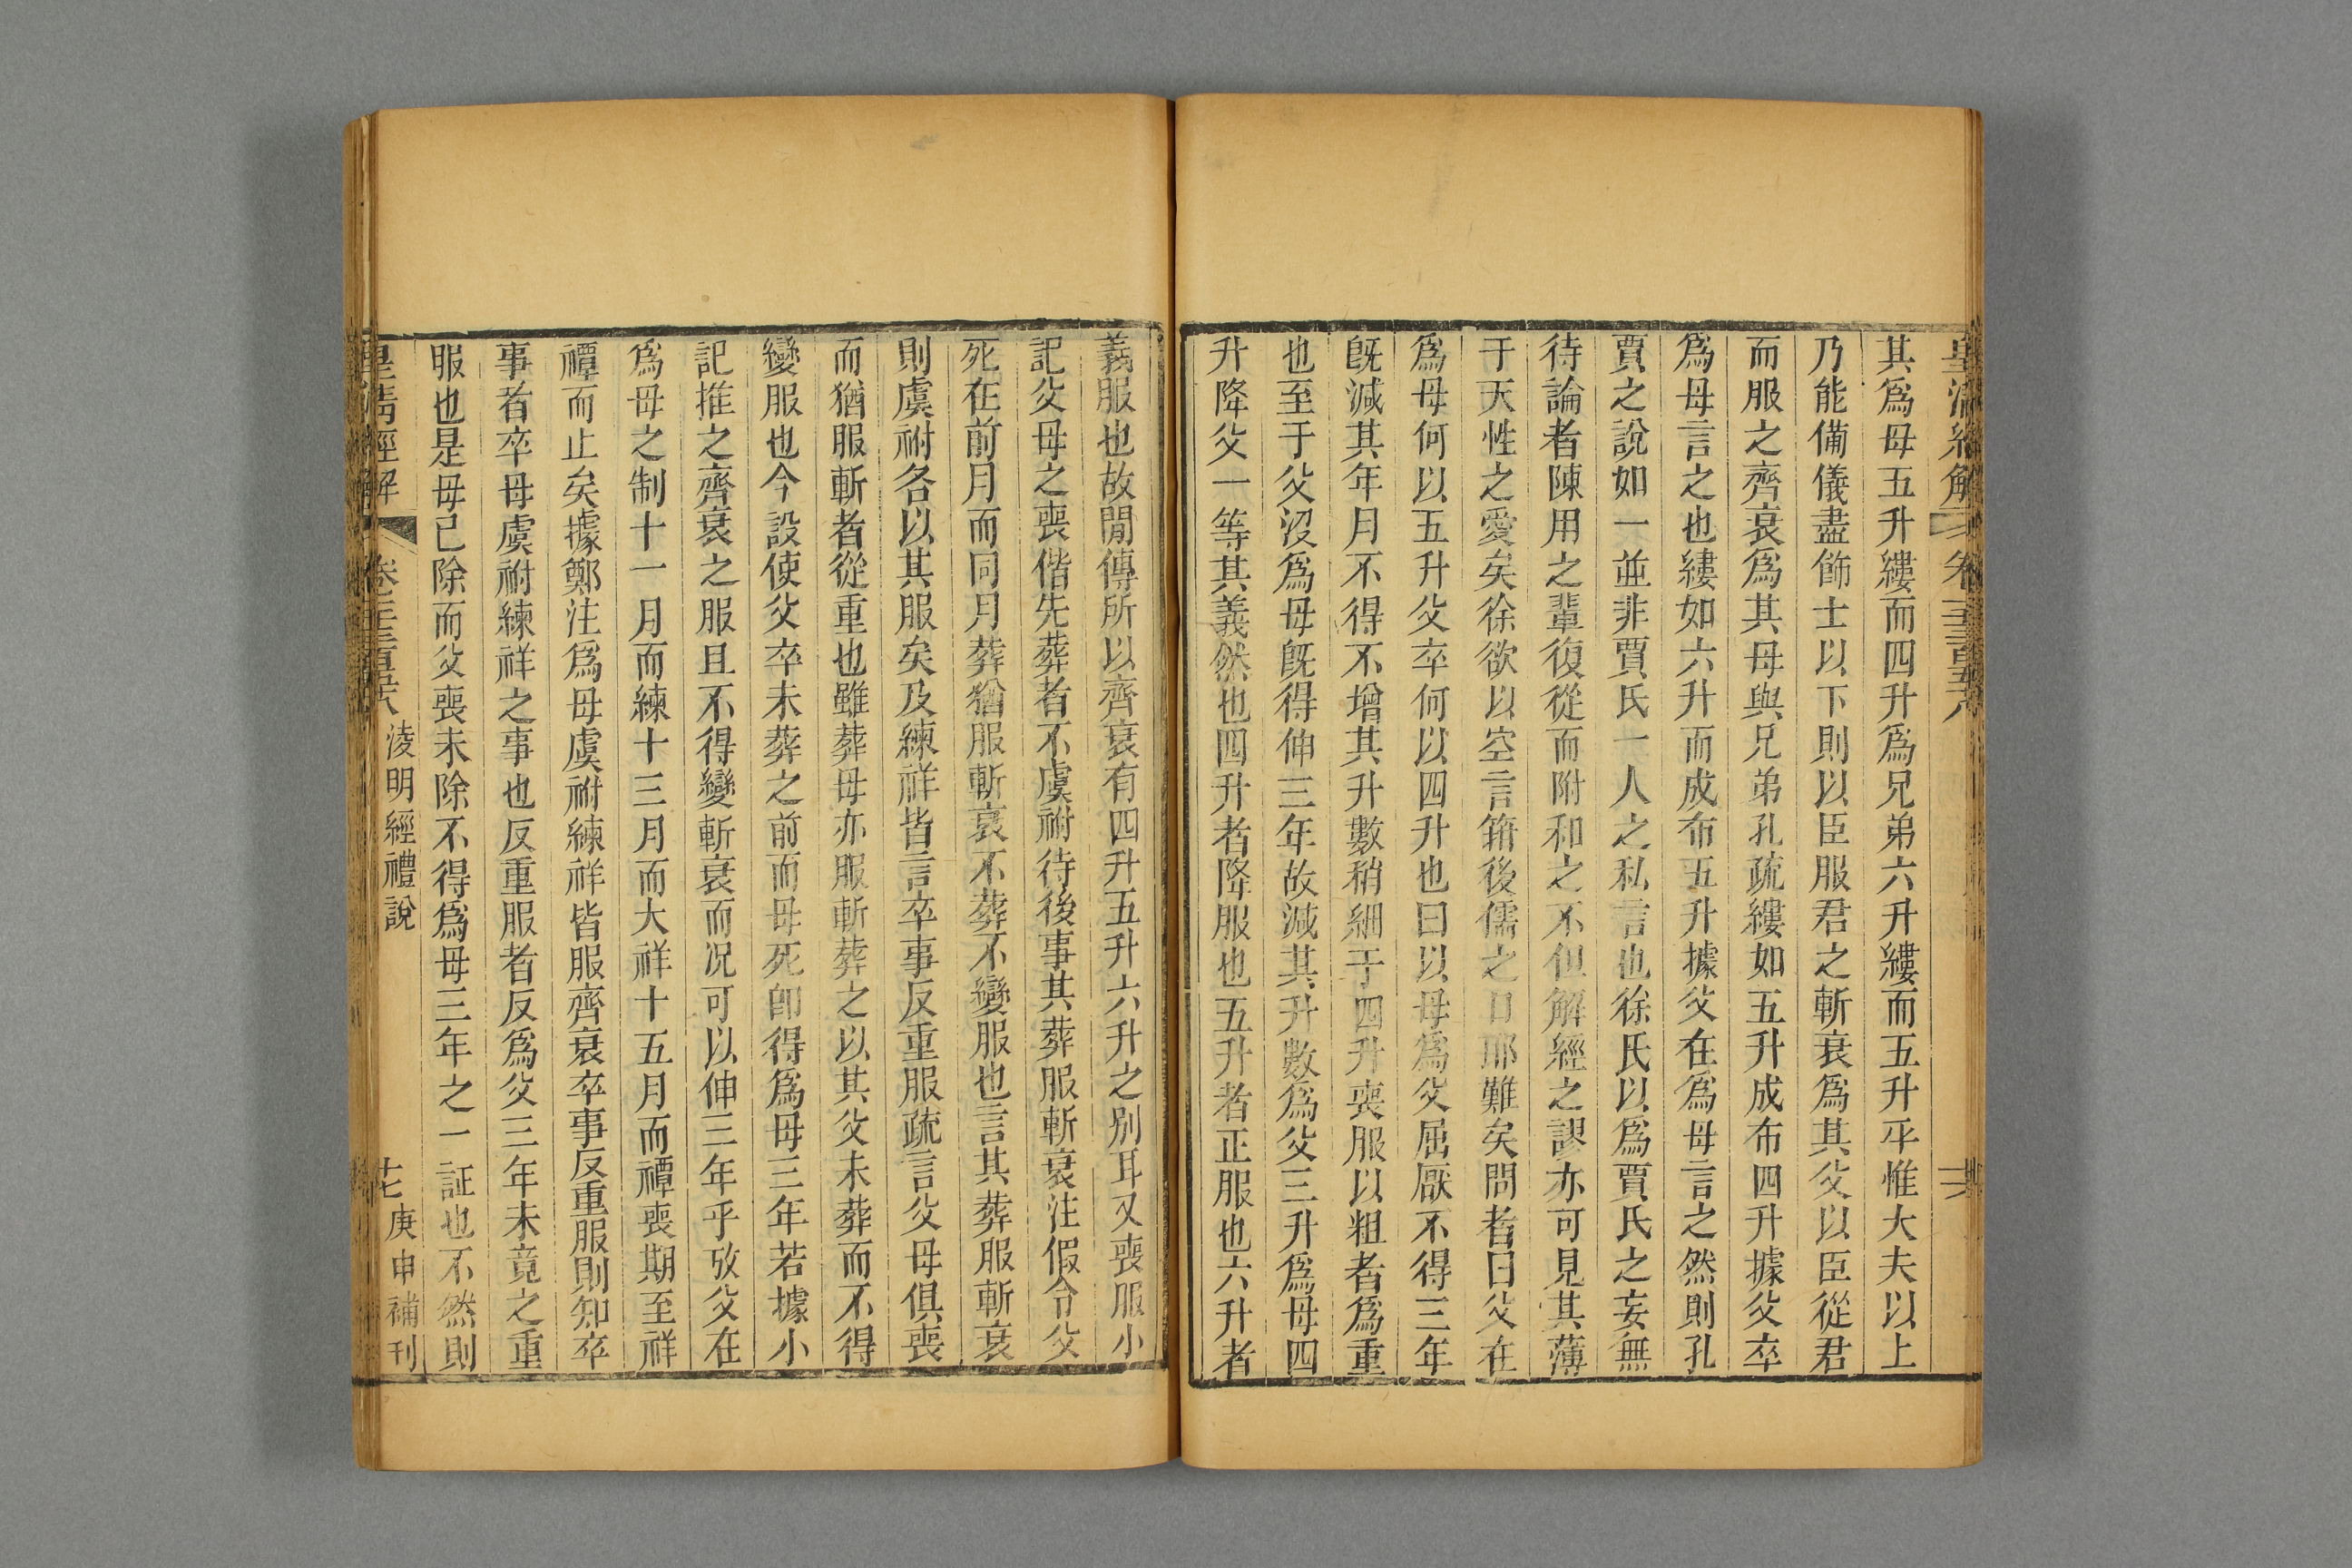 其爲母五升縷而四升爲兄弟六升縷而五升乎惟大夫以上
乃能備儀盡飾士以下則以臣服君之斬衰爲其父以臣從君
而服之齊衰爲其母與兄弟孔疏縷如五升成布四升據父卒
爲母言之也縷如六升而成布五升據父在爲母言之然則孔
賈之說如一並非賈氏一人之私言也徐氏以爲賈氏之妄無
待論者陳用之輩復從而附和之不但解經之謬亦可見其薄
于天性之愛矣徐欲以空言箝後儒之口耶難矣問者曰父在
爲母何以五升父卒何以四升也曰以母爲父屈厭不得三年
旣減其年月不得不增其升數稍細于四升喪服以粗者爲重
也至于父沒爲母旣得伸三年故減其升數爲父三升爲母四
升降父一等其義然也四升者降服也五升者正服也六升者
義服也故閒傳所以齊衰有四升五升六升之別耳又喪服小
記父母之喪偕先葬者不虞祔待後事其葬服斬衰注假令父
死在前月而同月葬猶服斬衰不葬不變服也言其葬服斬衰
則虞祔各以其服矣及練祥皆言卒事反重服疏言父母俱喪
而猶服斬者從重也雖葬母亦服斬葬之以其父未葬而不得
變服也今設使父卒未葬之前而母死卽得爲母三年若據小
記推之齊衰之服且不得變斬衰而况可以伸三年乎攷父在
爲母之制十一月而練十三月而大祥十五月而禫喪期至祥
禫而止矣據鄭注爲母虞祔練祥皆服齊衰卒事反重服則知卒
事者卒母虞祔練祥之事也反重服者反爲父三年未竟之重
服也是母已除而父喪未除不得爲母三年之一証也不然則
皇清經解 卷 淩明經禮說 庚申補刊